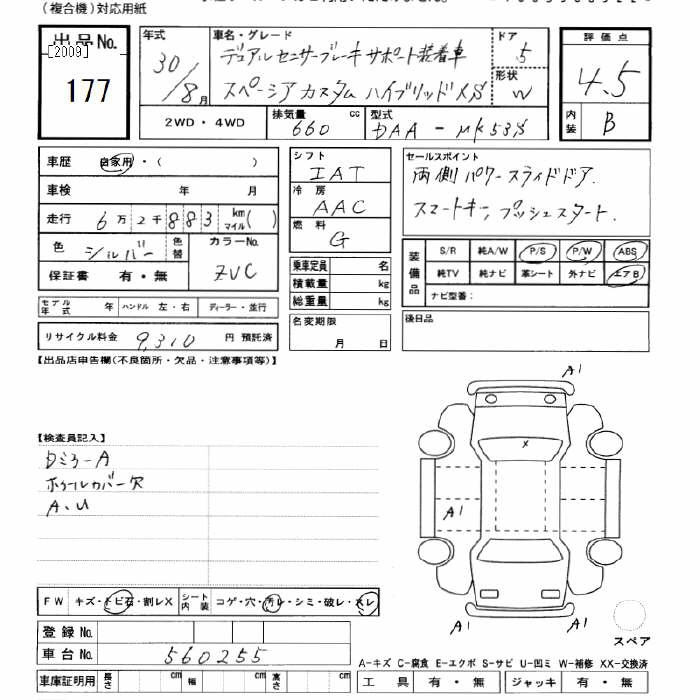 (複合機)対応用紙
出品No.
[2009]
177
年式
30/8月
車名・グレード
デュアルセンサーブレーキサポート装着車
スペーシアカスタム ハイブリッドXS
ドア
5
形状
W
評価点
4.5
内装
B
2WD・4WD
排気量
660
cc
型式
DAA-MK53S
車歴
自家用・( )
車検 年 月
走行 6万2千883 km マイル( )
色 シルバー 色替
カラーNo.
ZVC
保証書 有・無
モデル年式 年 ハンドル 左・右 ディーラー・並行
リサイクル料金 9,310 円 預託済
シフト
IAT
冷房
AAC
燃料
G
乗車定員 名
積載量 kg
総重量 kg
名変期限
月 日
セールスポイント
両側パワースライドドア.
スマートキー, プッシュスタート.
装備品
S/R 純A/W P/S P/W ABS
純TV 純ナビ 革シート 外ナビ エアB
ナビ型番:
後日品
【出品店申告欄(不良箇所・欠品・注意事項等)】
【検査員記入】
Dミラ-A
ホイールカバー欠
A.U
A1
X
A1
A1
A1
スペア
FW キズ・トビ石・割レX
シート内装 コゲ・穴・汚レ・シミ・破レ・スレ
登録No.
車台No. 560255
車庫証明用 長さ cm 幅 cm 高さ cm
A-キズ C-腐食 E-エクボ S-サビ U-凹ミ W-補修 XX-交換済
工具 有・無 ジャッキ 有・無